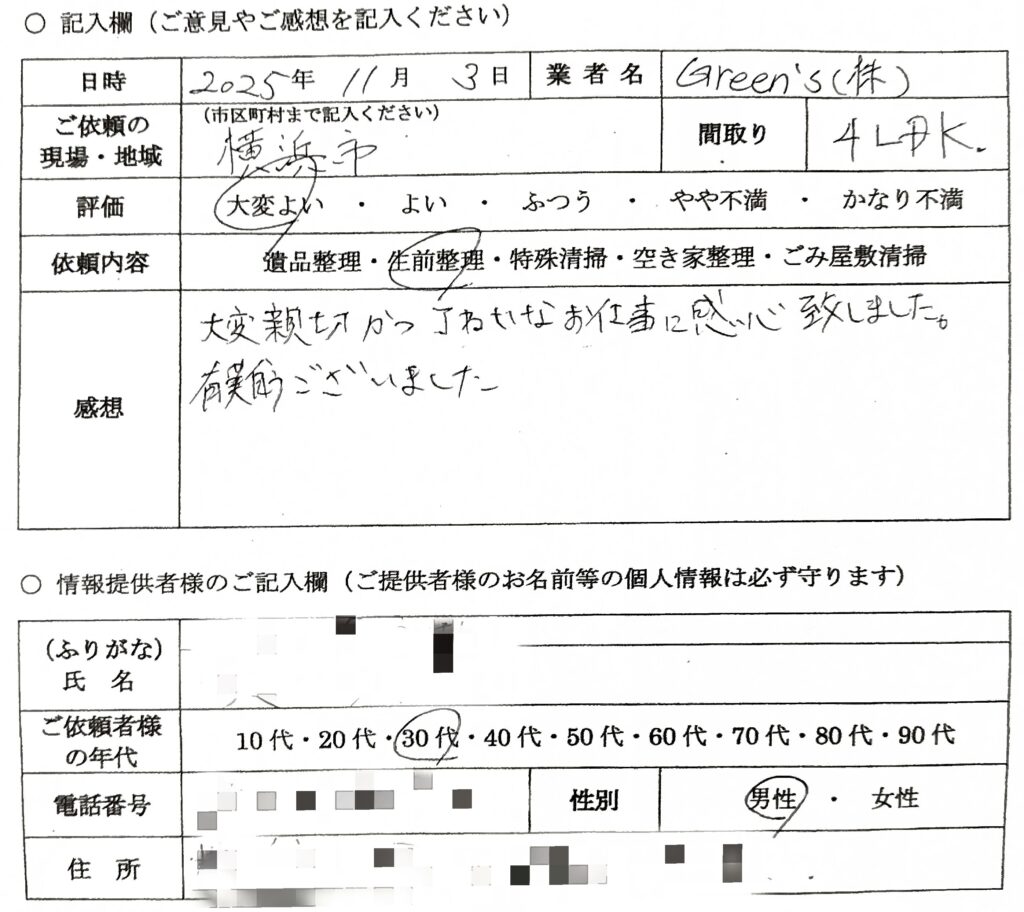 ○ 記入欄（ご意見やご感想を記入ください）
日時 2025年 11月 3日 業者名 Green's(株)
ご依頼の現場・地域 (市区町村まで記入ください) 横浜市 間取り 4LDK.
評価 大変よい ・ よい ・ ふつう ・ やや不満 ・ かなり不満
依頼内容 遺品整理・生前整理・特殊清掃・空き家整理・ごみ屋敷清掃
感想
大変親切かつ丁ねいなお仕事に感心致しました。
有難うございました
○ 情報提供者様のご記入欄（ご提供者様のお名前等の個人情報は必ず守ります）
（ふりがな）
氏 名
ご依頼者様の年代 10代・20代・30代・40代・50代・60代・70代・80代・90代
電話番号 性別 男性 ・ 女性
住 所